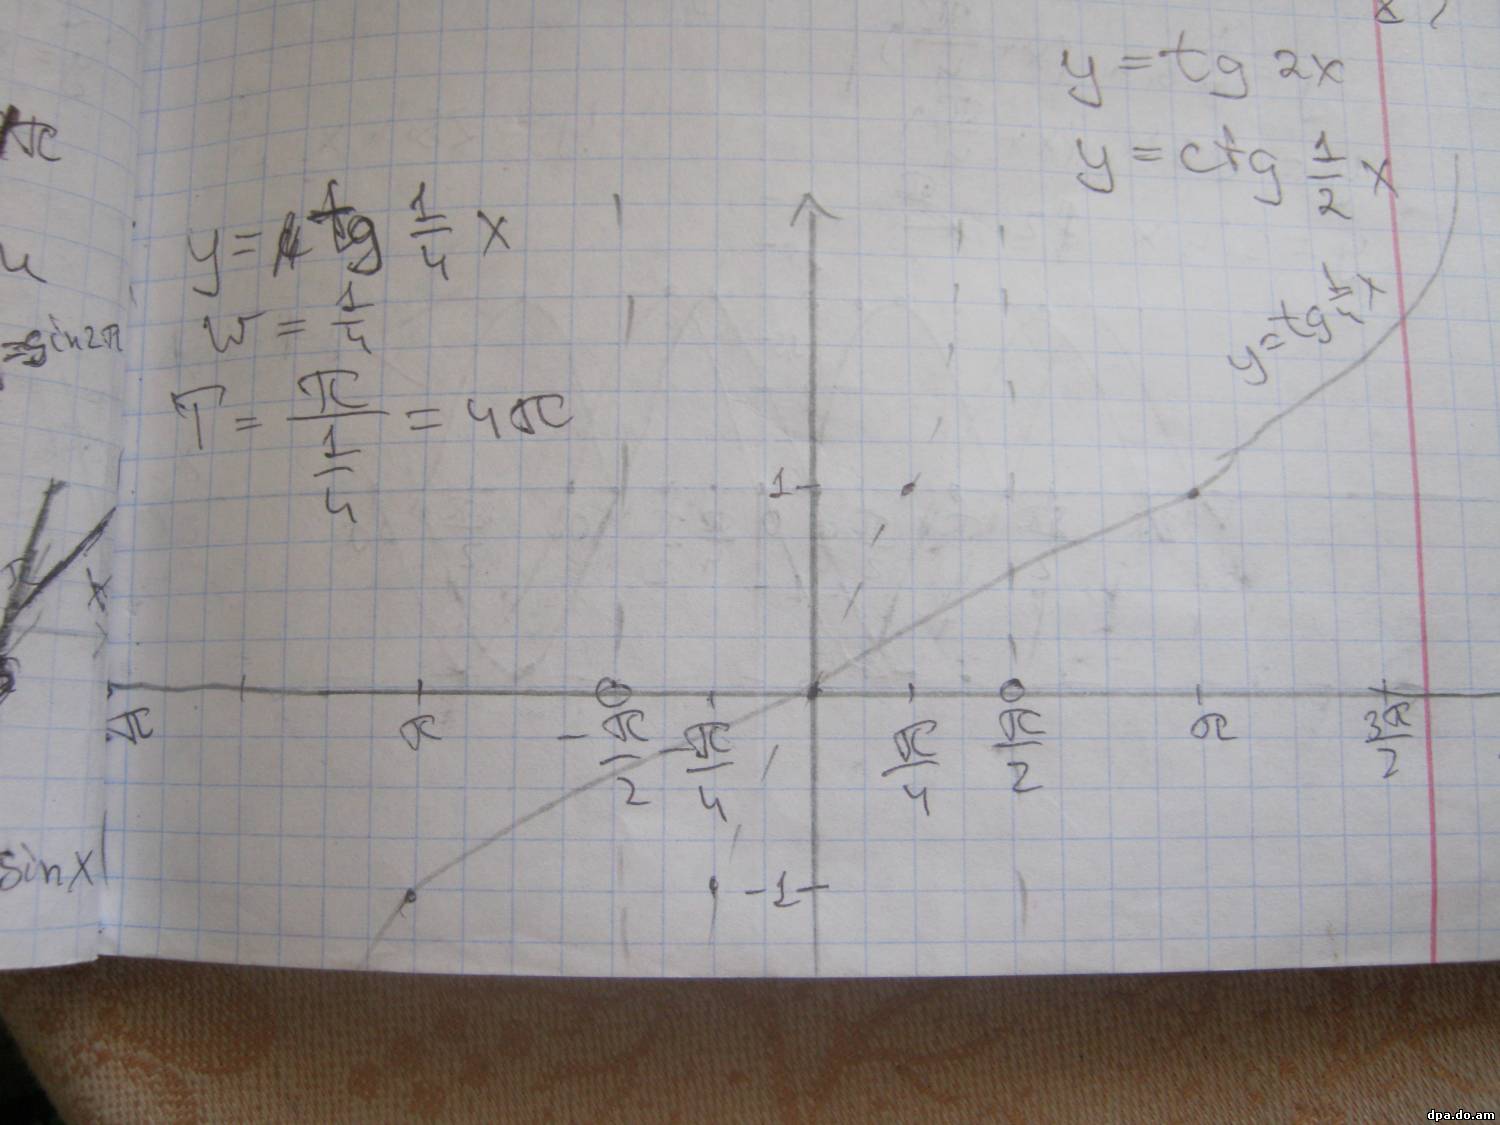 y = tg 2x
y = ctg 1/2 x
y = tg 1/4 x
w = 1/4
T = π/(1/4) = 4π
y = tg 1/4 x
π
=sin2π
sinx
x
1
-1
π
π
-π/2
-π/4
π/4
π/2
π
3π/2
dpa.do.am